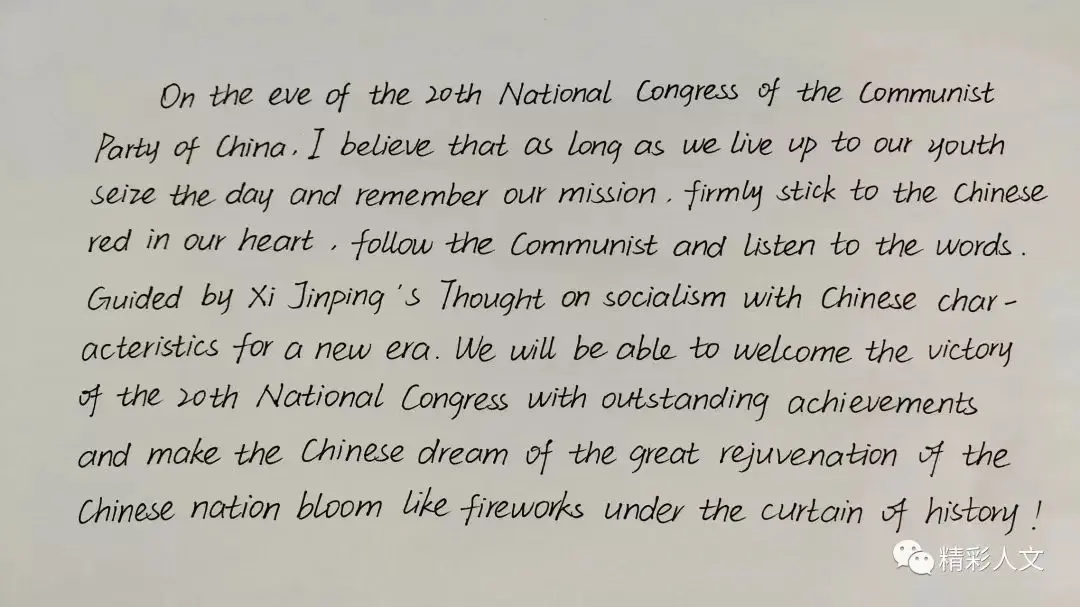 On the eve of the 20th National Congress of the Communist
Party of China, I believe that as long as we live up to our youth
seize the day and remember our mission, firmly stick to the Chinese
red in our heart, follow the Communist and listen to the words.
Guided by Xi Jinping's Thought on socialism with Chinese char-
acteristics for a new era. We will be able to welcome the victory
of the 20th National Congress with outstanding achievements
and make the Chinese dream of the great rejuvenation of the
Chinese nation bloom like fireworks under the curtain of history!
精彩人文